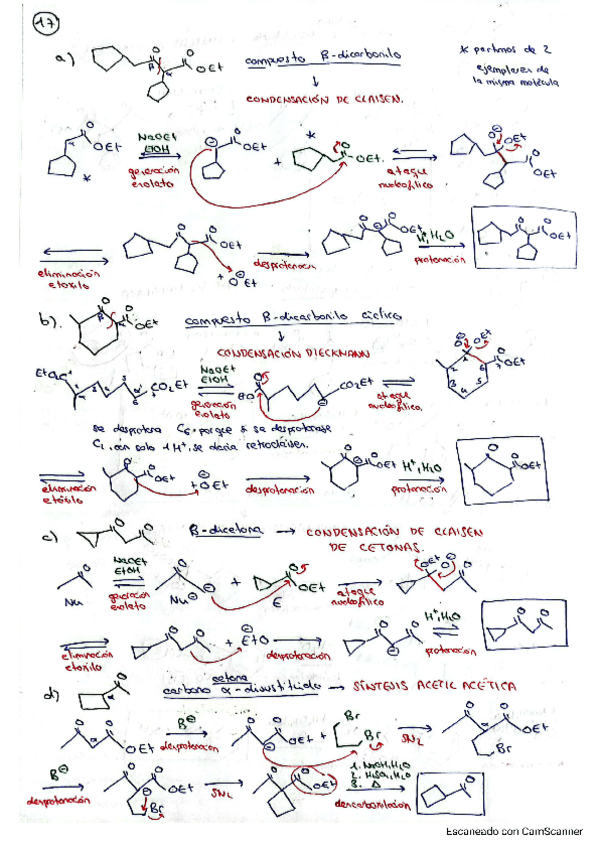 17
a)
compuesto β-dicarbonilo
* partimos de 2
ejemplares de
la misma molécula
O O
OEt
β α
↓
CONDENSACIÓN DE CLAISEN.
O
OEt
*
NaOEt
EtOH
generación
enolato
O
OEt
+
*
O
OEt.
ataque
nucleofílico
O OEt
O
OEt
eliminación
etóxilo
O O
OEt
+ OEt
desprotonación
O O
OEt
H+, H2O
protonación
O O
OEt
b).
O O
OEt
compuesto β-dicarbonilo cíclico
↓
CONDENSACIÓN DIECKMANN
EtO2C
CO2Et
NaOEt
EtOH
generación
enolato
CO2Et
ataque
nucleofílico.
O OEt
O
OEt
se desprotona C6, porque si se desprotonase
C1, con solo 1 H+, se daría retroclaisen.
eliminación
etóxilo
O O
OEt
+ OEt
desprotonación
O O
OEt
H+, H2O
protonación
O O
OEt
c)
O O
β-dicetona → CONDENSACIÓN DE CLAISEN
DE CETONAS.
O
Nu
NaOEt
EtOH
generación
enolato
O
Nu
+
O
OEt
E
ataque
nucleofílico
OEt O
O
eliminación
etóxilo
O O
+ EtO
desprotonación
O O
H+, H2O
protonación
O O
d)
O
α
cetona
carbono α-disustituido → SÍNTESIS ACETIL ACÉTICA
O O
OEt
B
desprotonación
O O
OEt
+
Br
Br
SN2
O O
OEt
Br
B
desprotonación
O O
OEt
Br
SN2
O O
OEt
1. NaOH, H2O
2. H2SO4, H2O
3. Δ
descarboxilación
O
Escaneado con CamScanner